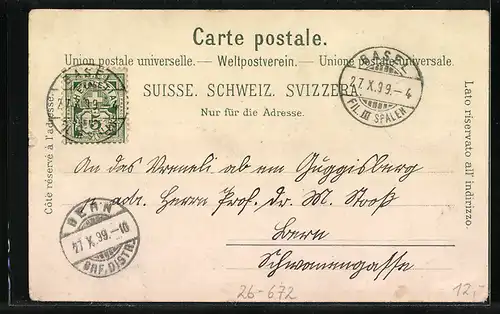 Carte postale.
Union postale universelle. — Weltpostverein. — Unione postale universale.
SUISSE. SCHWEIZ. SVIZZERA.
Nur für die Adresse.
Côté réservé à l'adresse.
Lato riservato all' indirizzo.
BASEL
27.X.99.–4
FIL. III SPALEN
BASEL
27.X.99
5
An das Vreneli ab em Guggisberg
adr. Herrn Prof. Dr. M. Stooß
Bern
Schwanengasse
BERN
27.X.99.–10
BRF. DISTR.
26-672
12,-